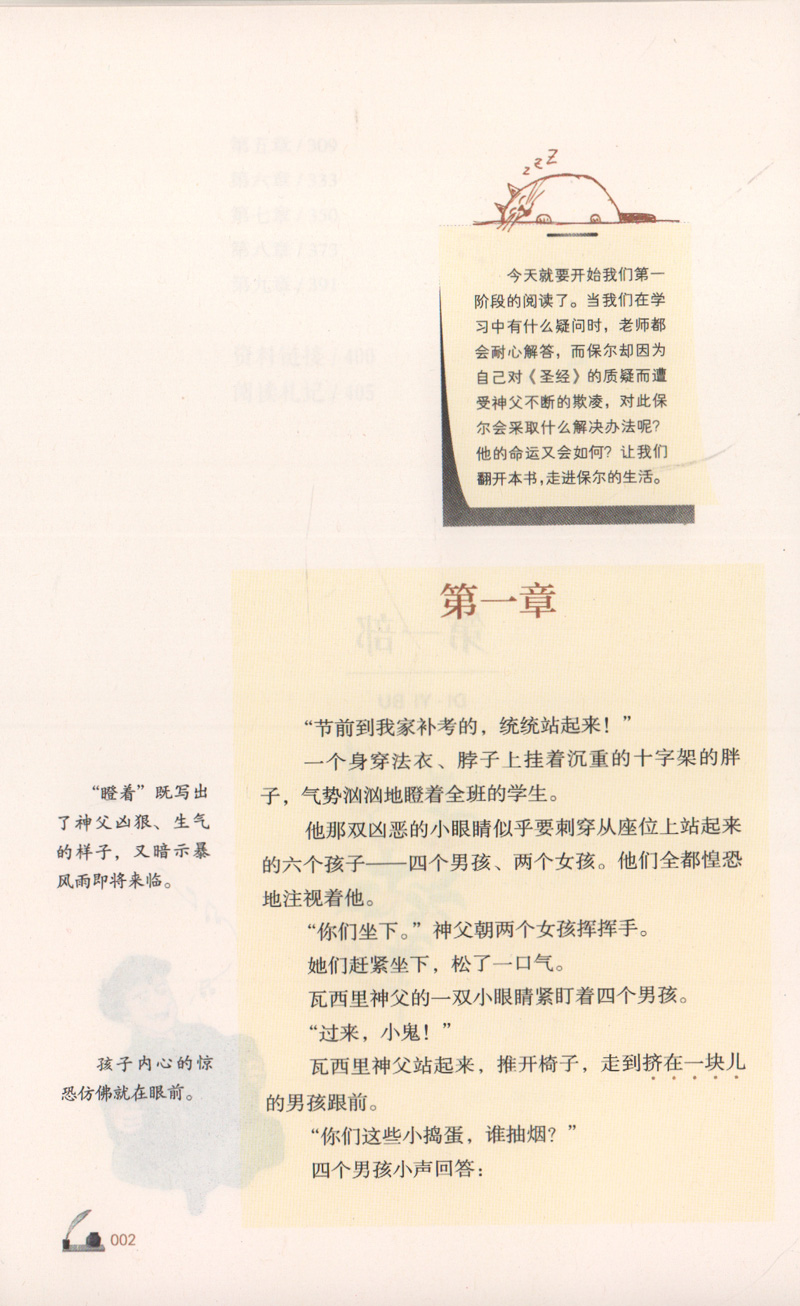 zzZ
今天就要开始我们第一
阶段的阅读了。当我们在学
习中有什么疑问时，老师都
会耐心解答，而保尔却因为
自己对《圣经》的质疑而遭
受神父不断的欺凌，对此保
尔会采取什么解决办法呢？
他的命运又会如何？让我们
翻开本书，走进保尔的生活。
第一章
“节前到我家补考的，统统站起来！”
一个身穿法衣、脖子上挂着沉重的十字架的胖
子，气势汹汹地瞪着全班的学生。
他那双凶恶的小眼睛似乎要刺穿从座位上站起来
的六个孩子——四个男孩、两个女孩。他们全都惶恐
地注视着他。
“你们坐下。”神父朝两个女孩挥挥手。
她们赶紧坐下，松了一口气。
瓦西里神父的一双小眼睛紧盯着四个男孩。
“过来，小鬼！”
瓦西里神父站起来，推开椅子，走到挤在一块儿
的男孩跟前。
“你们这些小捣蛋，谁抽烟？”
四个男孩小声回答：
“瞪着”既写出
了神父凶狠、生气
的样子，又暗示暴
风雨即将来临。
孩子内心的惊
恐仿佛就在眼前。
002